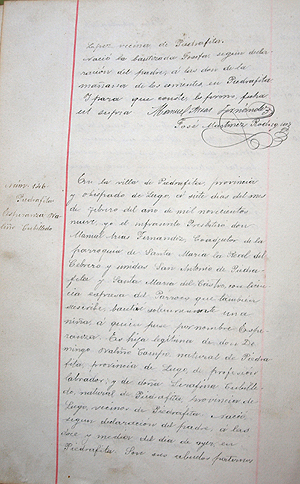 Lopez vecinos de Piedrafita.
Nació la bautizada Josefa segun decla-
ración del padre, a las dos de la
mañana de los corrientes en Piedrafita
Y para que conste lo firmo, fecha
ut supra Manuel Arias Fernández
José Martinez Rodriguez
Núm. 146
Piedrafita
Esperanza Na-
Cubilledo
En la villa de Piedrafita, provincia
y obispado de Lugo, á siete dias del mes
de Febrero del año de mil novecientos
nueve yo el infrascrito Presbitero don
Manuel Arias Fernandez Coadjutor de la
parroquia de Santa Maria la Real del
Cebrero y unidas San Antonio de Piedra-
fita y Santa Maria del Castro, con licen-
cia expresa del Párroco que tambien
suscribe, bauticé solemnemente una
niña á quien puse por nombre Espe-
ranza. Es hija legitima de don Do-
mingo natural de Piedra-
fita, provincia de Lugo, de profesión
labrador; y de doña Serafina Cubille-
do natural de Piedrafita provincia de
Lugo, vecinos de Piedrafita. nació,
segun declaracion del padre á las
doce y media del dia de ayer en
Piedrafita Son sus abuelos paternos